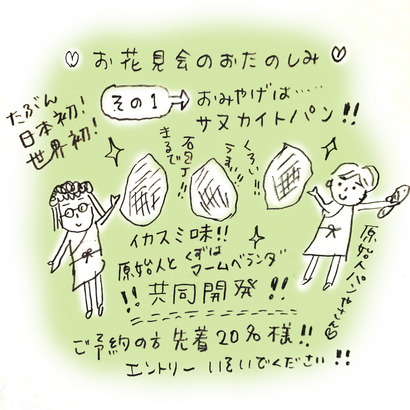 お花見会のおたのしみ
たぶん
日本初!
世界初!
その1
おみやげは……
サヌカイトパン!!
まるで
石包丁!!
くろい!!
うまい!!
イカスミ味!!
原始人と くずは
マームベランダ
!!共同開発!!
原始人パンやさん
ご予約の方 先着20名様!!
エントリー いそいでください!!